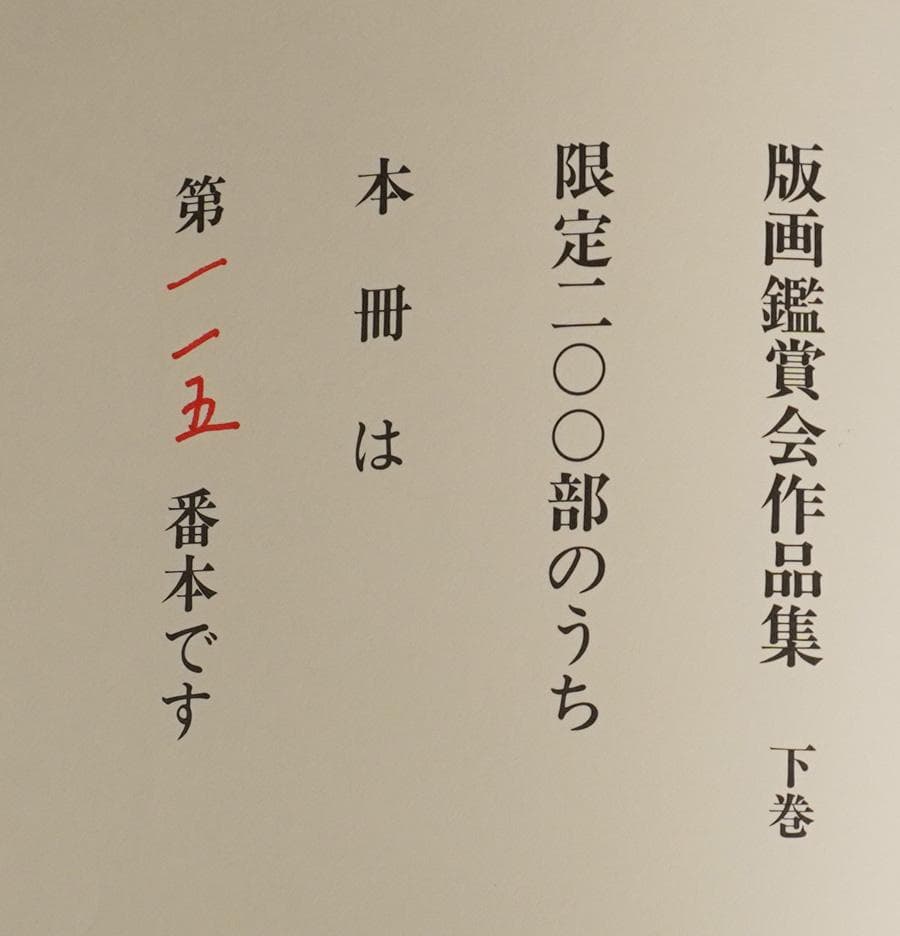 版画鑑賞会作品集　下巻
限定二〇〇部のうち
本冊は
第一一五番本です